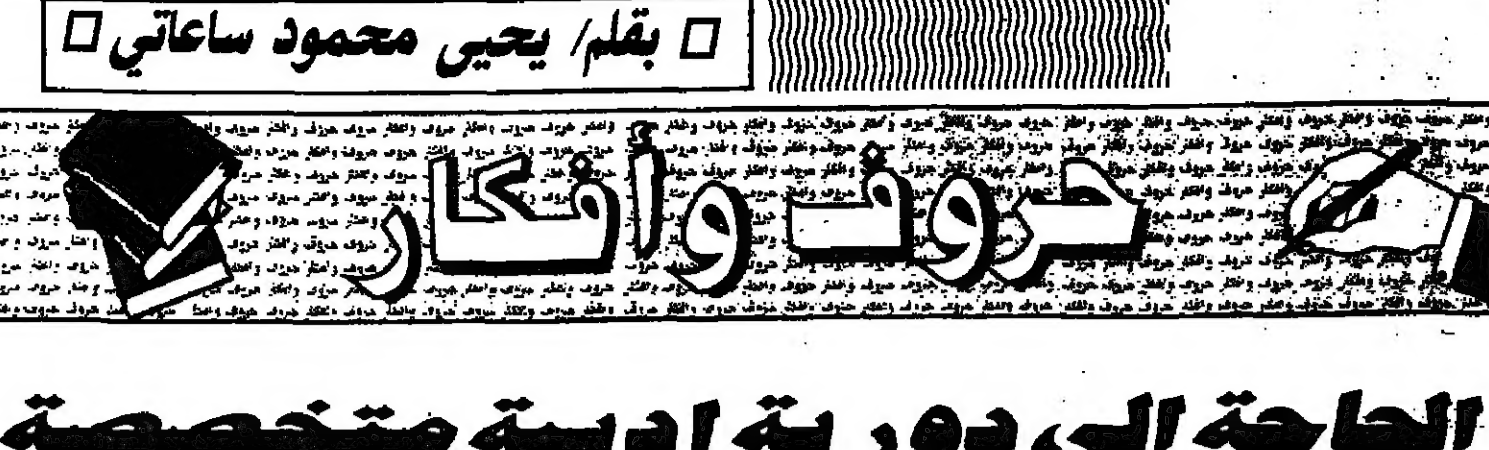 □ بقلم/ يحيى محمود ساعاتي □
حروف وأفكار
الحاجة إلى دورية أدبية متخصصة